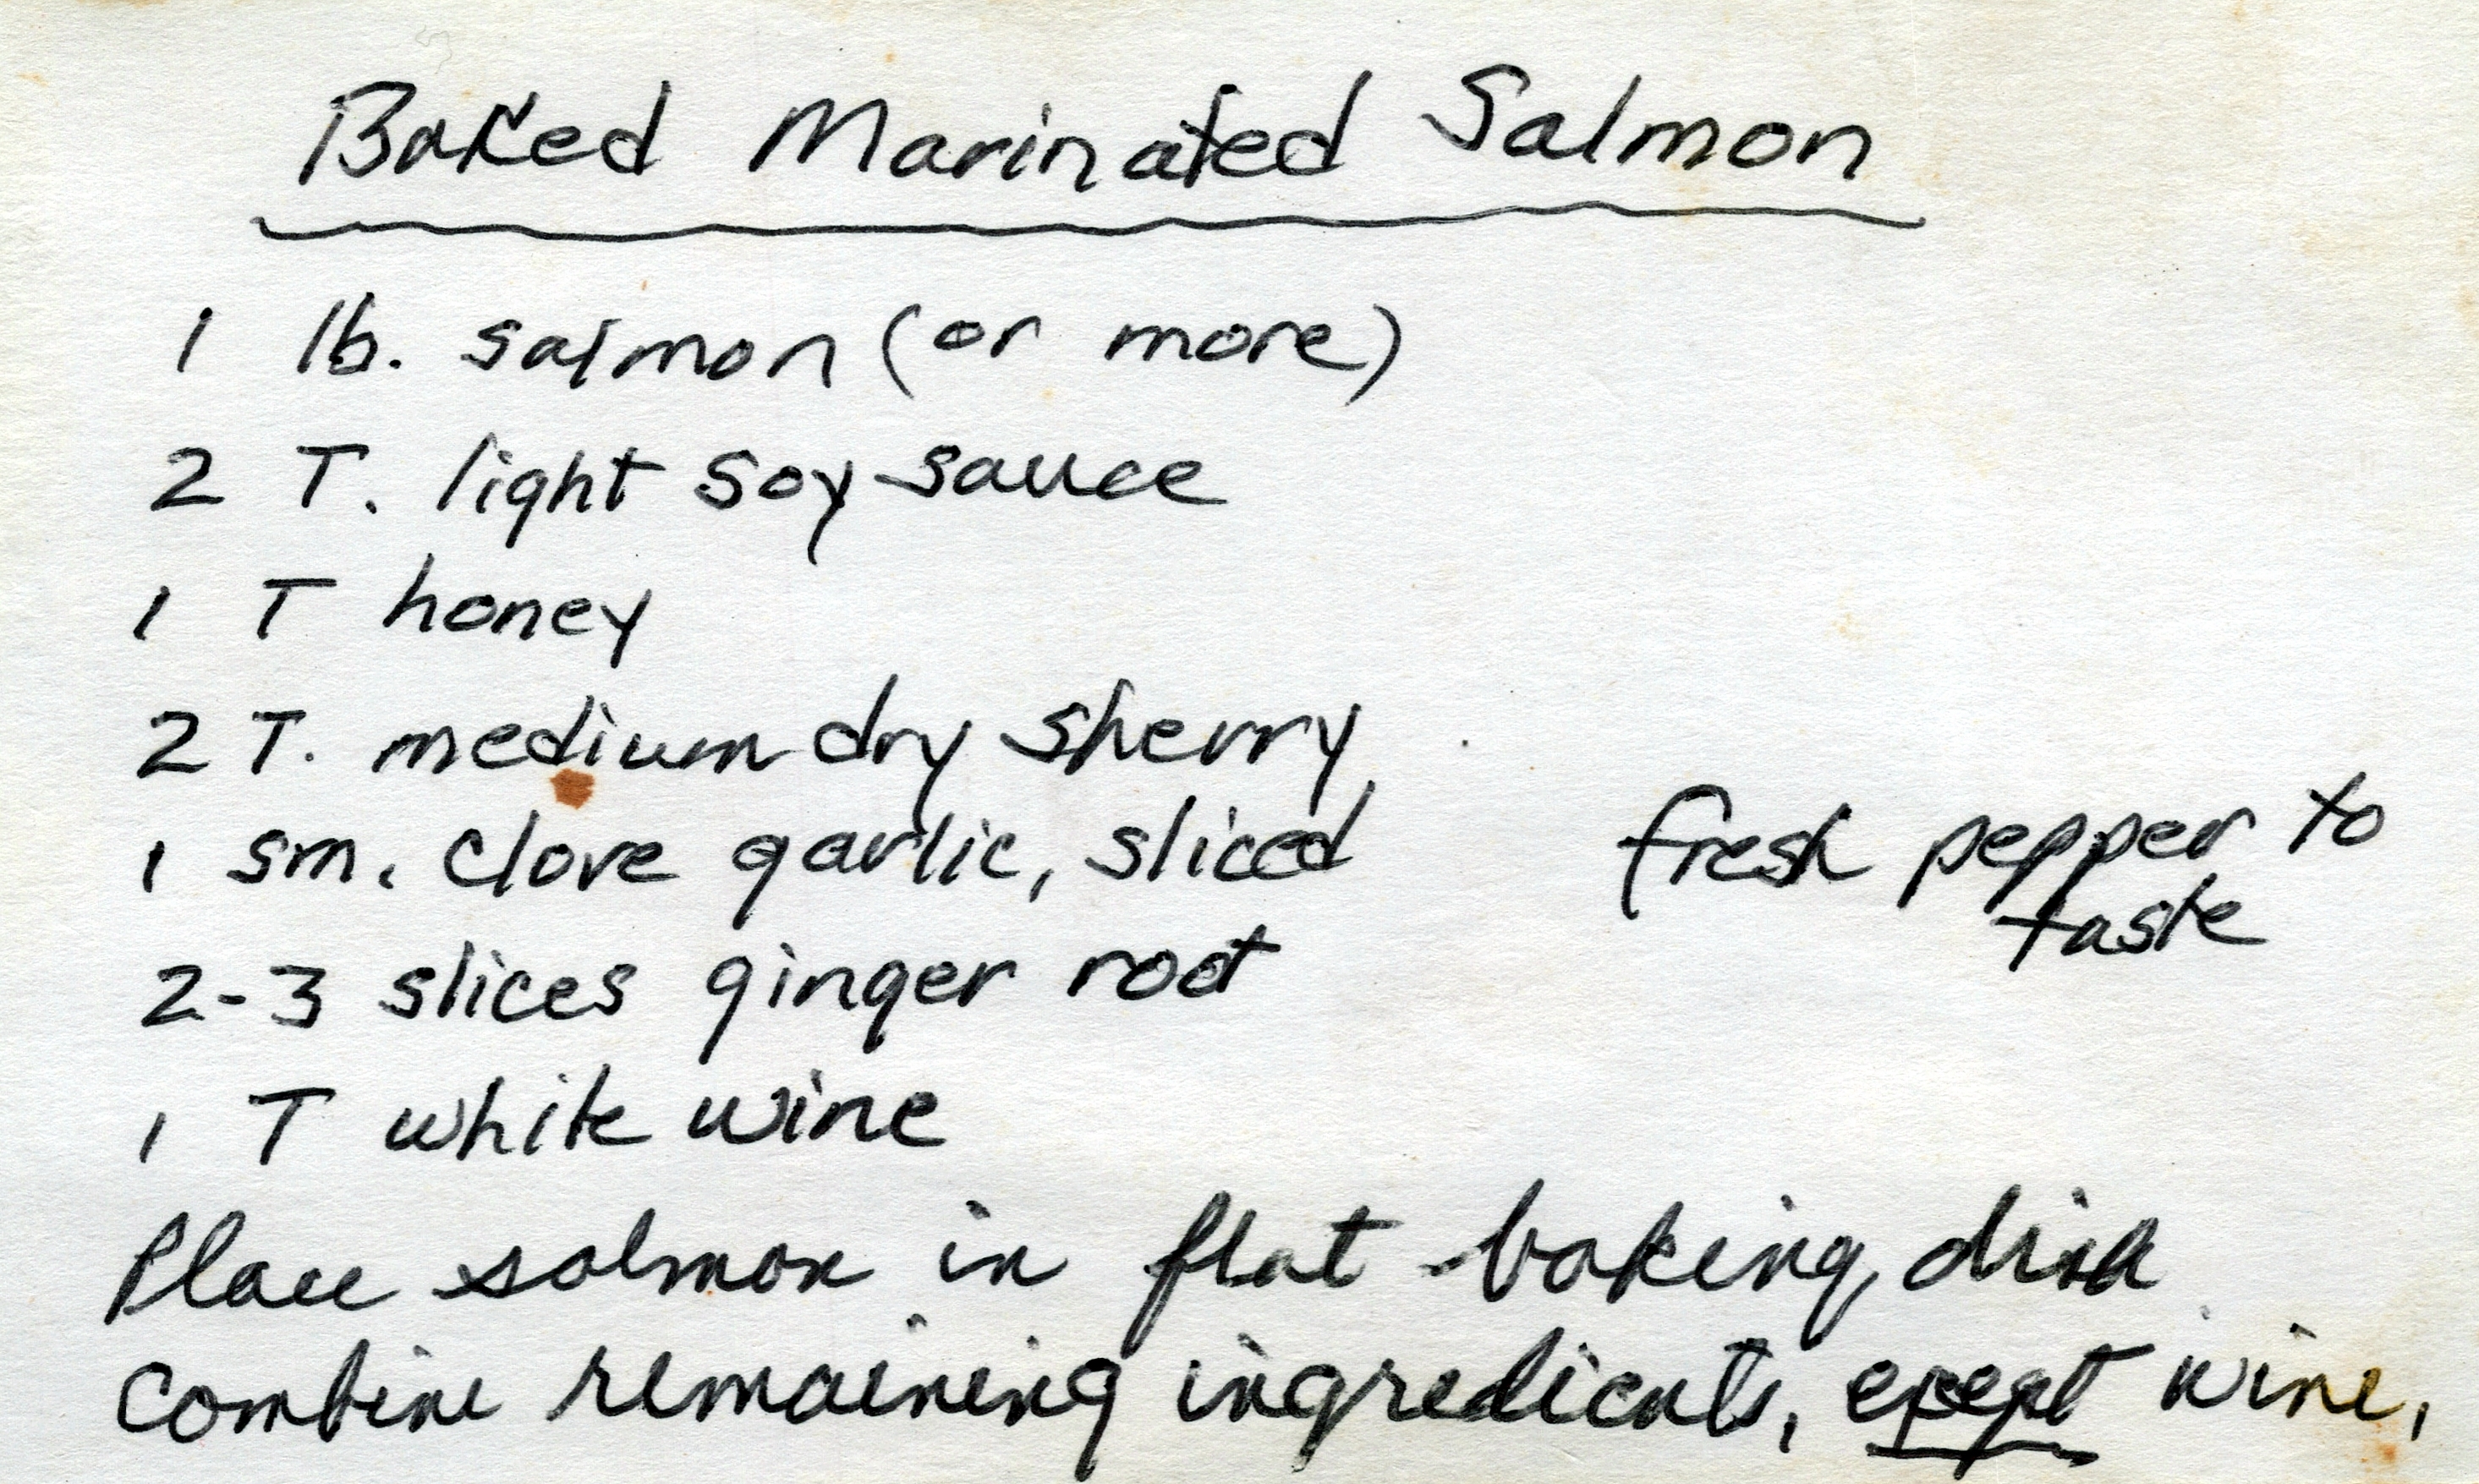 Baked Marinated Salmon
1 lb. salmon (or more)
2 T. light soy sauce
1 T honey
2 T. medium dry sherry
1 sm. clove garlic, sliced
fresh pepper to
taste
2-3 slices ginger root
1 T white wine
Place salmon in flat baking dish
Combine remaining ingredients, except wine,